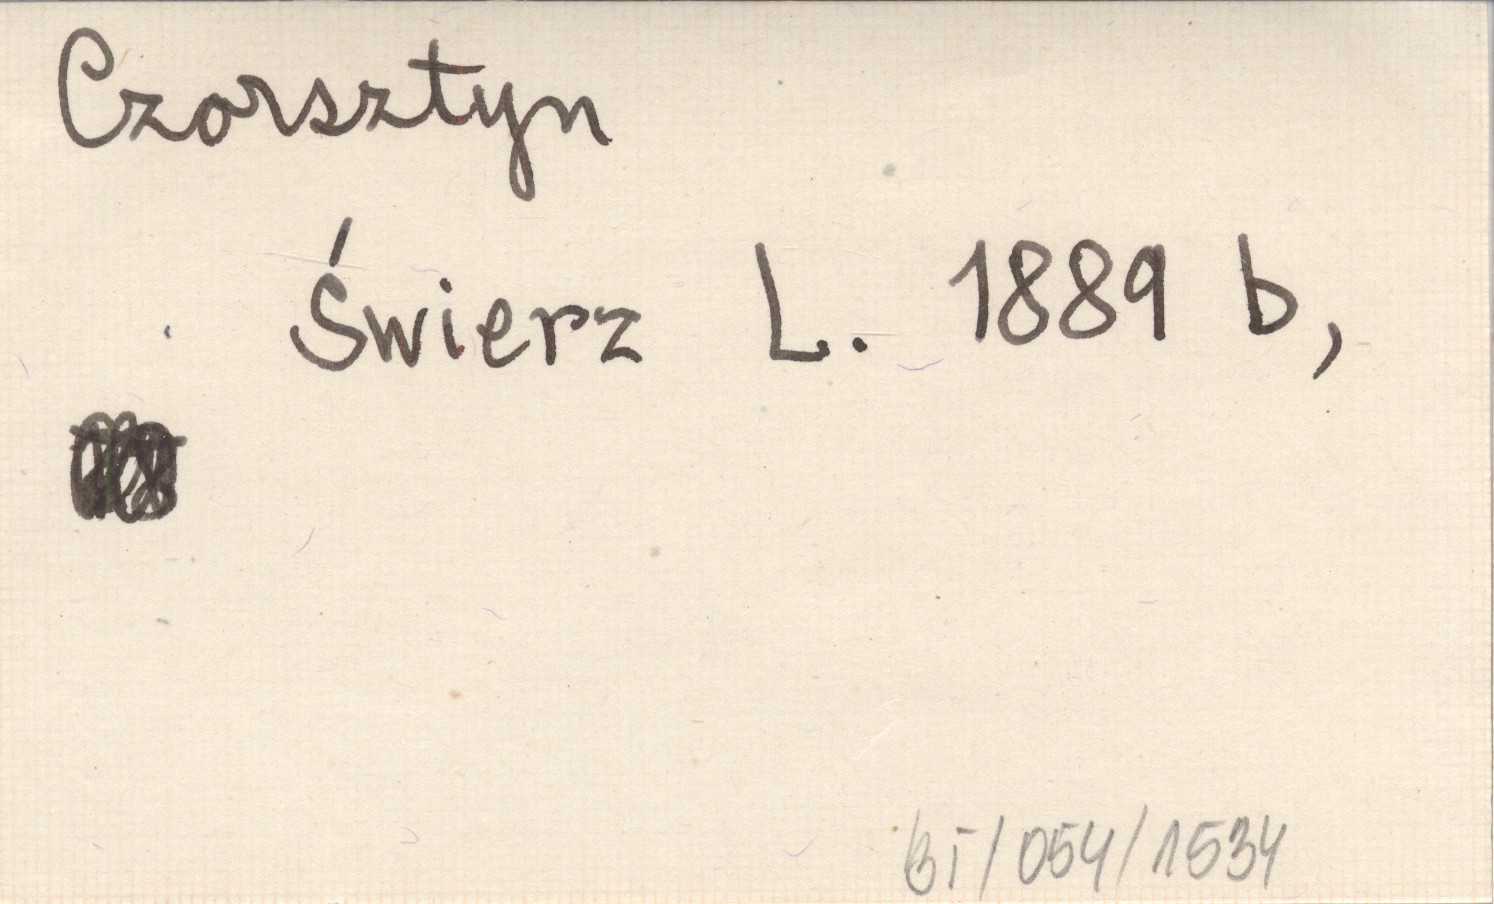 Czorsztyn
Świerz L. 1889 b,
BT/054/1534